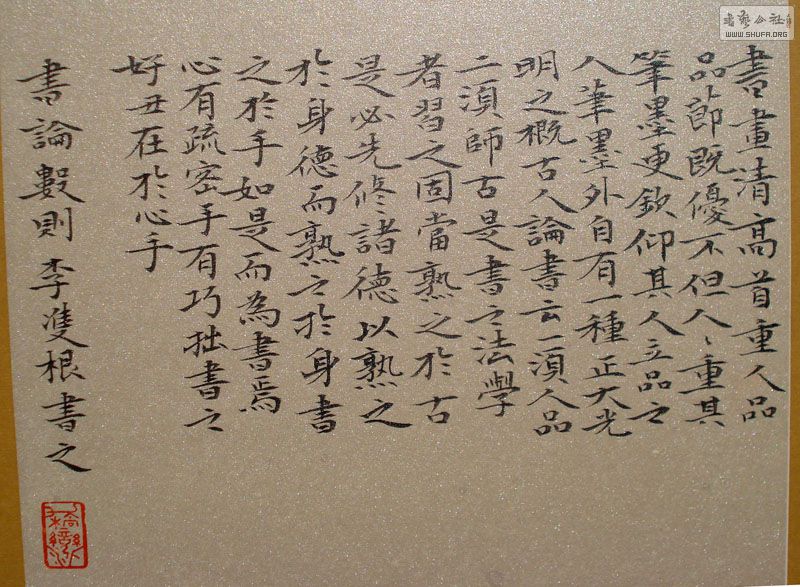 書畫清高首重人品
品節既優不但人々重其
筆墨更欽仰其人立品之
人筆墨外自有一種正大光
明之概古人論書云一須人品
二須師古是書之法學
者習之固當熟之於古
是必先修諸德以熟之
於身德而熟之於身書
之於手如是而為書焉
心有疏密手有巧拙書之
好丑在於心手
書論數則李雙根書之
書藝公社
WWW.SHUFA.ORG